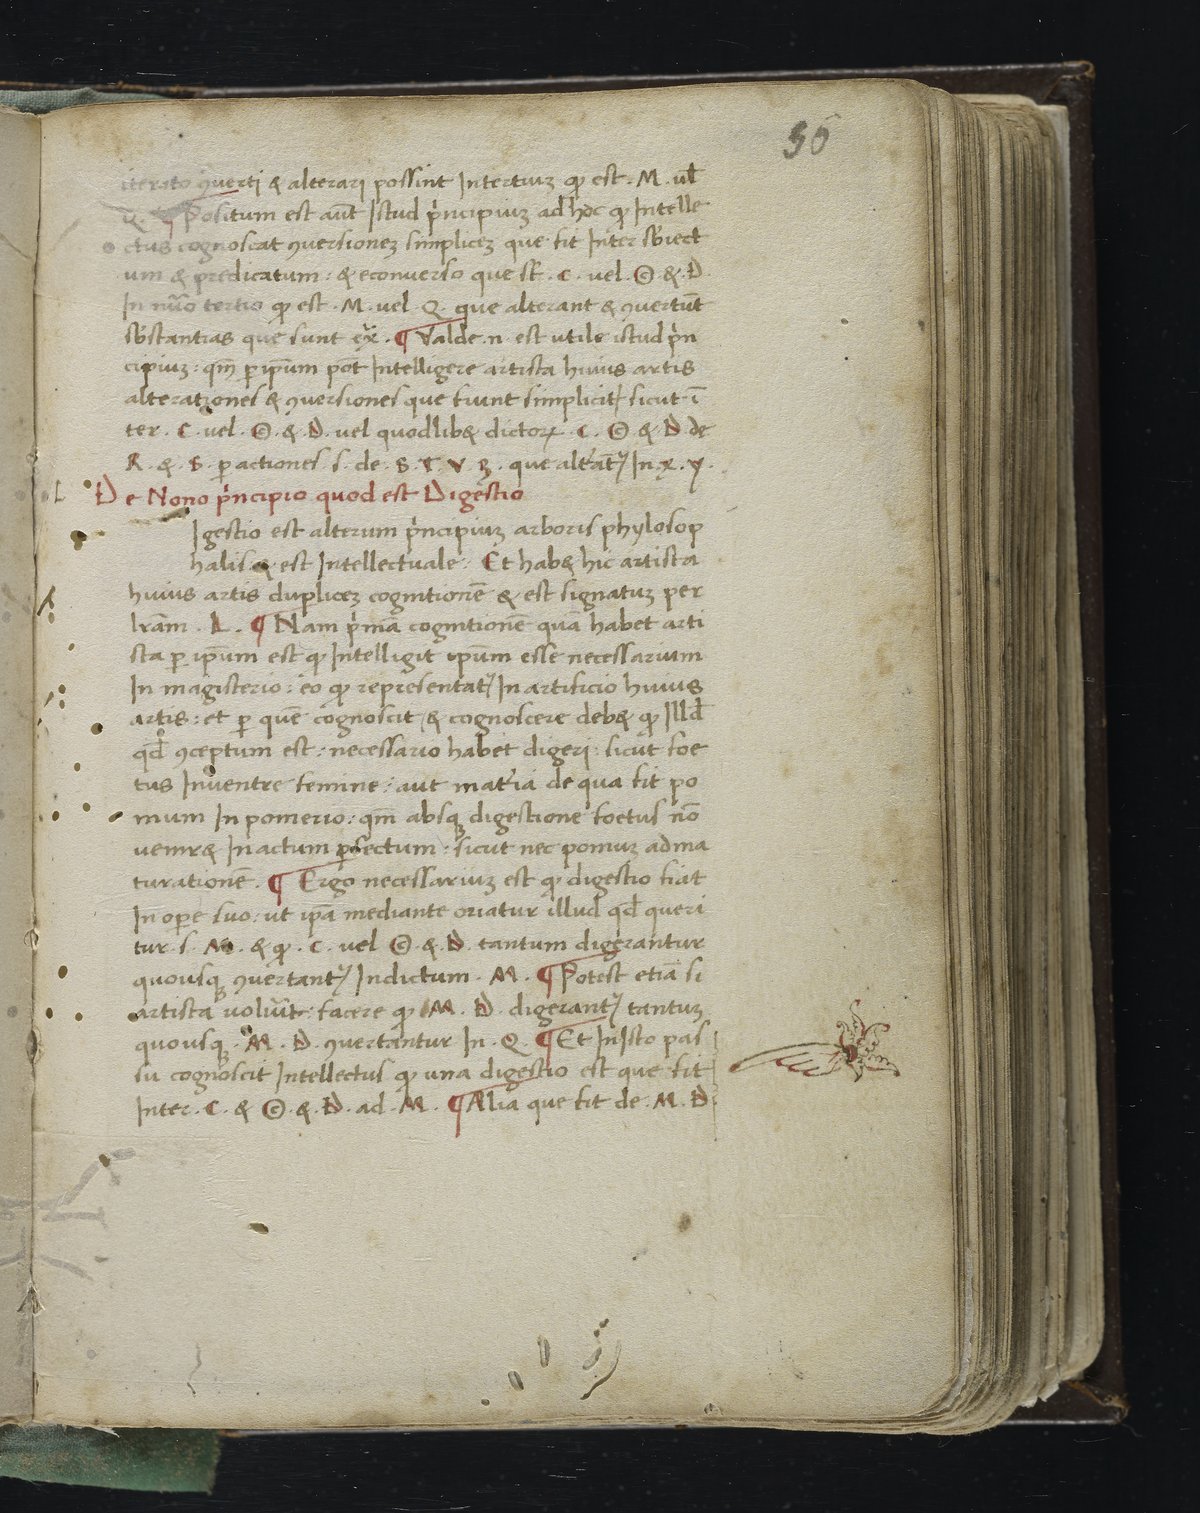 36
iterato ꝯuerti & alterari possint Intertiuꝫ qꝫ est . M . ul̄
Q. ¶ Positum est aut̄ Istud pⁱncipiuꝫ ad hoc qꝫ Intelle
ctus cognoscat ꝯuersioneꝫ simpliceꝫ que fit Inter sb̄iect
um & predicatum : & econuerso que st̄ . C . vel . © & . D
In nūo tertio qꝫ est . M . vel . Q . que alterant & ꝯuertūt
sb̄stantias que sunt . ¶ Valde . n . est utile istud pⁱn
cipiuꝫ : qm̄ ꝑ ipsum pōt Intelligere artista huius artis
alterationes & ꝯuersiones que fiunt simplicit̉ sicut ī
ter . C . vel . © . & . D . vel quodlibꝫ dictoꝝ . C . © & D de
R . & . S . ꝑ actiones . s . de . S . T . V . . que alt̉ant̉ In . X . Y .
L De Nono pⁱncipio quod est Digestio
Igestio est alterum pⁱncipiuꝫ arboris phylosop
halis & est Intellectuale : Et habꝫ hic artista
huius artis dupliceꝫ cognitionē & est signatuꝫ per
lr̄am . L . ¶ Nam pⁱmā cognitionē quā habet arti
sta ꝑ ipsum est qꝫ Intelligit ipsum esse necessarium
In magisterio : eo qꝫ representat̉ In artificio huius
artis : et ꝑ quē cognoscit & cognoscere debꝫ qꝫ Illd̄
qd̄ ꝯceptum est : necessario habet digeri : sicut foe
tus Inuentre femine : aut mat̉ia de qua fit po
mum In pomerio : qm̄ absqꝫ digestione foetus nō
uenirꝫ In actum ꝑfectum : sicut nec pomuꝫ ad ma
turatione . ¶ Ergo necessariuꝫ est qꝫ digestio fiat
In oꝑe suo : ut ip̄a mediante oriatur illud qd̄ queri
tur . s . M . & qꝫ . C . vel © . & . D . tantum digerantur
quousqꝫ ꝯuertant̉ Indictum . M . ¶ Potest etiā si
artista voluⁱt : facere qꝫ M . D . digerant̉ tantuꝫ
quousqꝫ . M . D . ꝯuertantur In . Q . ¶ Et InIsto pas
su cognoscit Intellectus qꝫ una digestio est que fit
Inter . C . & © . & . D . ad . M . ¶ Alia que fit de . M . D